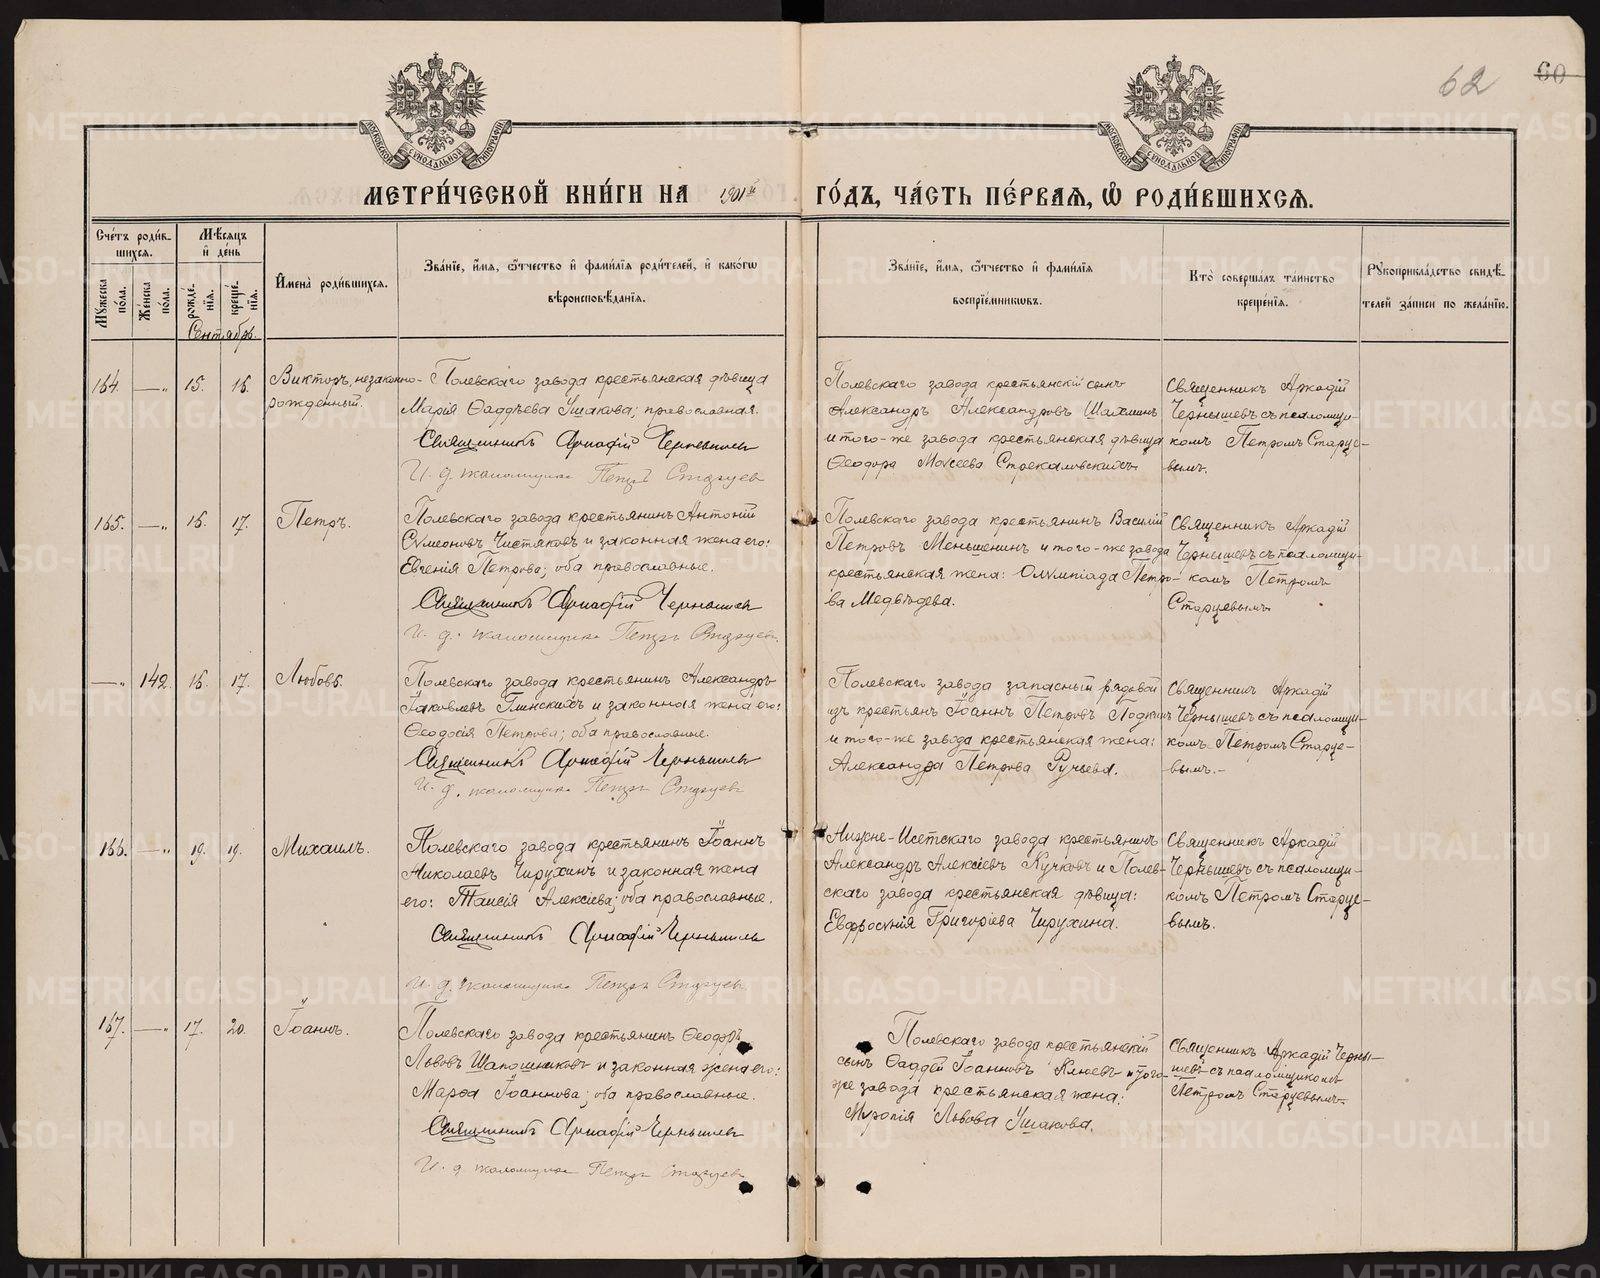 62
60
МОСКОВСКОЙ СѴНОДАЛЬНОЙ ТИПОГРАФІИ
МОСКОВСКОЙ СѴНОДАЛЬНОЙ ТИПОГРАФІИ
МЕТРИ́ЧЕСКОЙ КНИ́ГИ НА 1901й ГО́ДЪ, ЧА́СТЬ ПЕ́РВАЯ, Ѡ РОДИ́ВШИХСЯ.
Сче́тъ роди́в-
шихся.
Мѣ́сяцъ
и де́нь
Мꙋжеска по́ла.
Же́нска по́ла.
рожде́нїя.
креще́нїя.
Имена̀ роди́вшихся.
Зва́нїе, и́мя, ѻ́тчество и фами́лїя роди́телей, и како́гѡ
вѣроисповѣ́данїя.
Зва́нїе, и́мя, ѻ́тчество и фами́лїя
воспрїе́мникѡвъ.
Кто̀ соверша́лъ та́инство
креще́нїя.
Рꙋкоприкла́дство свидѣ́-
телей за́писи по жела́нїю.
Сентябрь.
164. —„ 15. 16.
Викторъ, незаконно-
рожденный.
Полевскаго завода крестьянская дѣвица
Марія Ѳаддѣева Ушакова; православная.
Священникъ Аркадій Чернышевъ
И. д. псаломщика Петръ Старцевъ
Полевскаго завода крестьянскій сынъ
Александръ Александровъ Шахминъ
и того-же завода крестьянская дѣвица
Ѳеодора Моѵсеева Стрекаловскихъ.
Священникъ Аркадій
Чернышевъ съ псаломщи-
комъ Петромъ Старце-
вымъ.
165. —„ 16. 17.
Петръ.
Полевскаго завода крестьянинъ Антоній
Сѵмеоновъ Чистяковъ и законная жена его:
Евгенія Петрова; оба православные.
Священникъ Аркадій Чернышевъ
И. д. псаломщика Петръ Старцевъ.
Полевскаго завода крестьянинъ Василій
Петровъ Меньшенинъ и того-же завода
крестьянская жена: Олѵмпіада Петро-
ва Медвѣдева.
Священникъ Аркадій
Чернышевъ съ псаломщи-
комъ Петромъ
Старцевымъ
—„ 142. 16. 17.
Любовь.
Полевскаго завода крестьянинъ Александръ
Іаковлевъ Глинскихъ и законная жена его:
Ѳеодосія Петрова; оба православные.
Священникъ Аркадій Чернышевъ
И. д. псаломщика Петръ Старцевъ
Полевскаго завода запасный рядовой
изъ крестьянъ Іоаннъ Петровъ
и того-же завода крестьянская жена:
Александра Петрова Ручьева.
Священникъ Аркадій
Чернышевъ съ псаломщи-
комъ Петромъ Старце-
вымъ.-
166. —„ 19. 19.
Михаилъ.
Полевскаго завода крестьянинъ Іоаннъ
Николаевъ Чирухинъ и законная жена
его: Таисія Алексіева; оба православные.
Священникъ Аркадій Чернышевъ
И. д. псаломщика Петръ Старцевъ
Нижне-Исетскаго завода крестьянинъ
Александръ Алексіевъ Кучковъ и Полев-
скаго завода крестьянская дѣвица:
Евфросѵнія Григоріева Чирухина.
Священникъ Аркадій
Чернышевъ съ псаломщи-
комъ Петромъ Старце-
вымъ.
167. —„ 17. 20.
Іоаннъ.
Полевскаго завода крестьянинъ Ѳеодоръ
Львовъ Шапошниковъ и законная жена его:
Марѳа Іоаннова; оба православные.
Священникъ Аркадій Чернышевъ
И. д. псаломщика Петръ Старцевъ
Полевскаго завода крестьянскій
сынъ Ѳаддей Іоанновъ Клюевъ и того-
же завода крестьянская жена:
Муропія Львова Ушакова.
Священникъ Аркадій Черны-
шевъ съ псаломщикомъ
Петромъ Старцевымъ.
METRIKI.GASO-URAL.RU